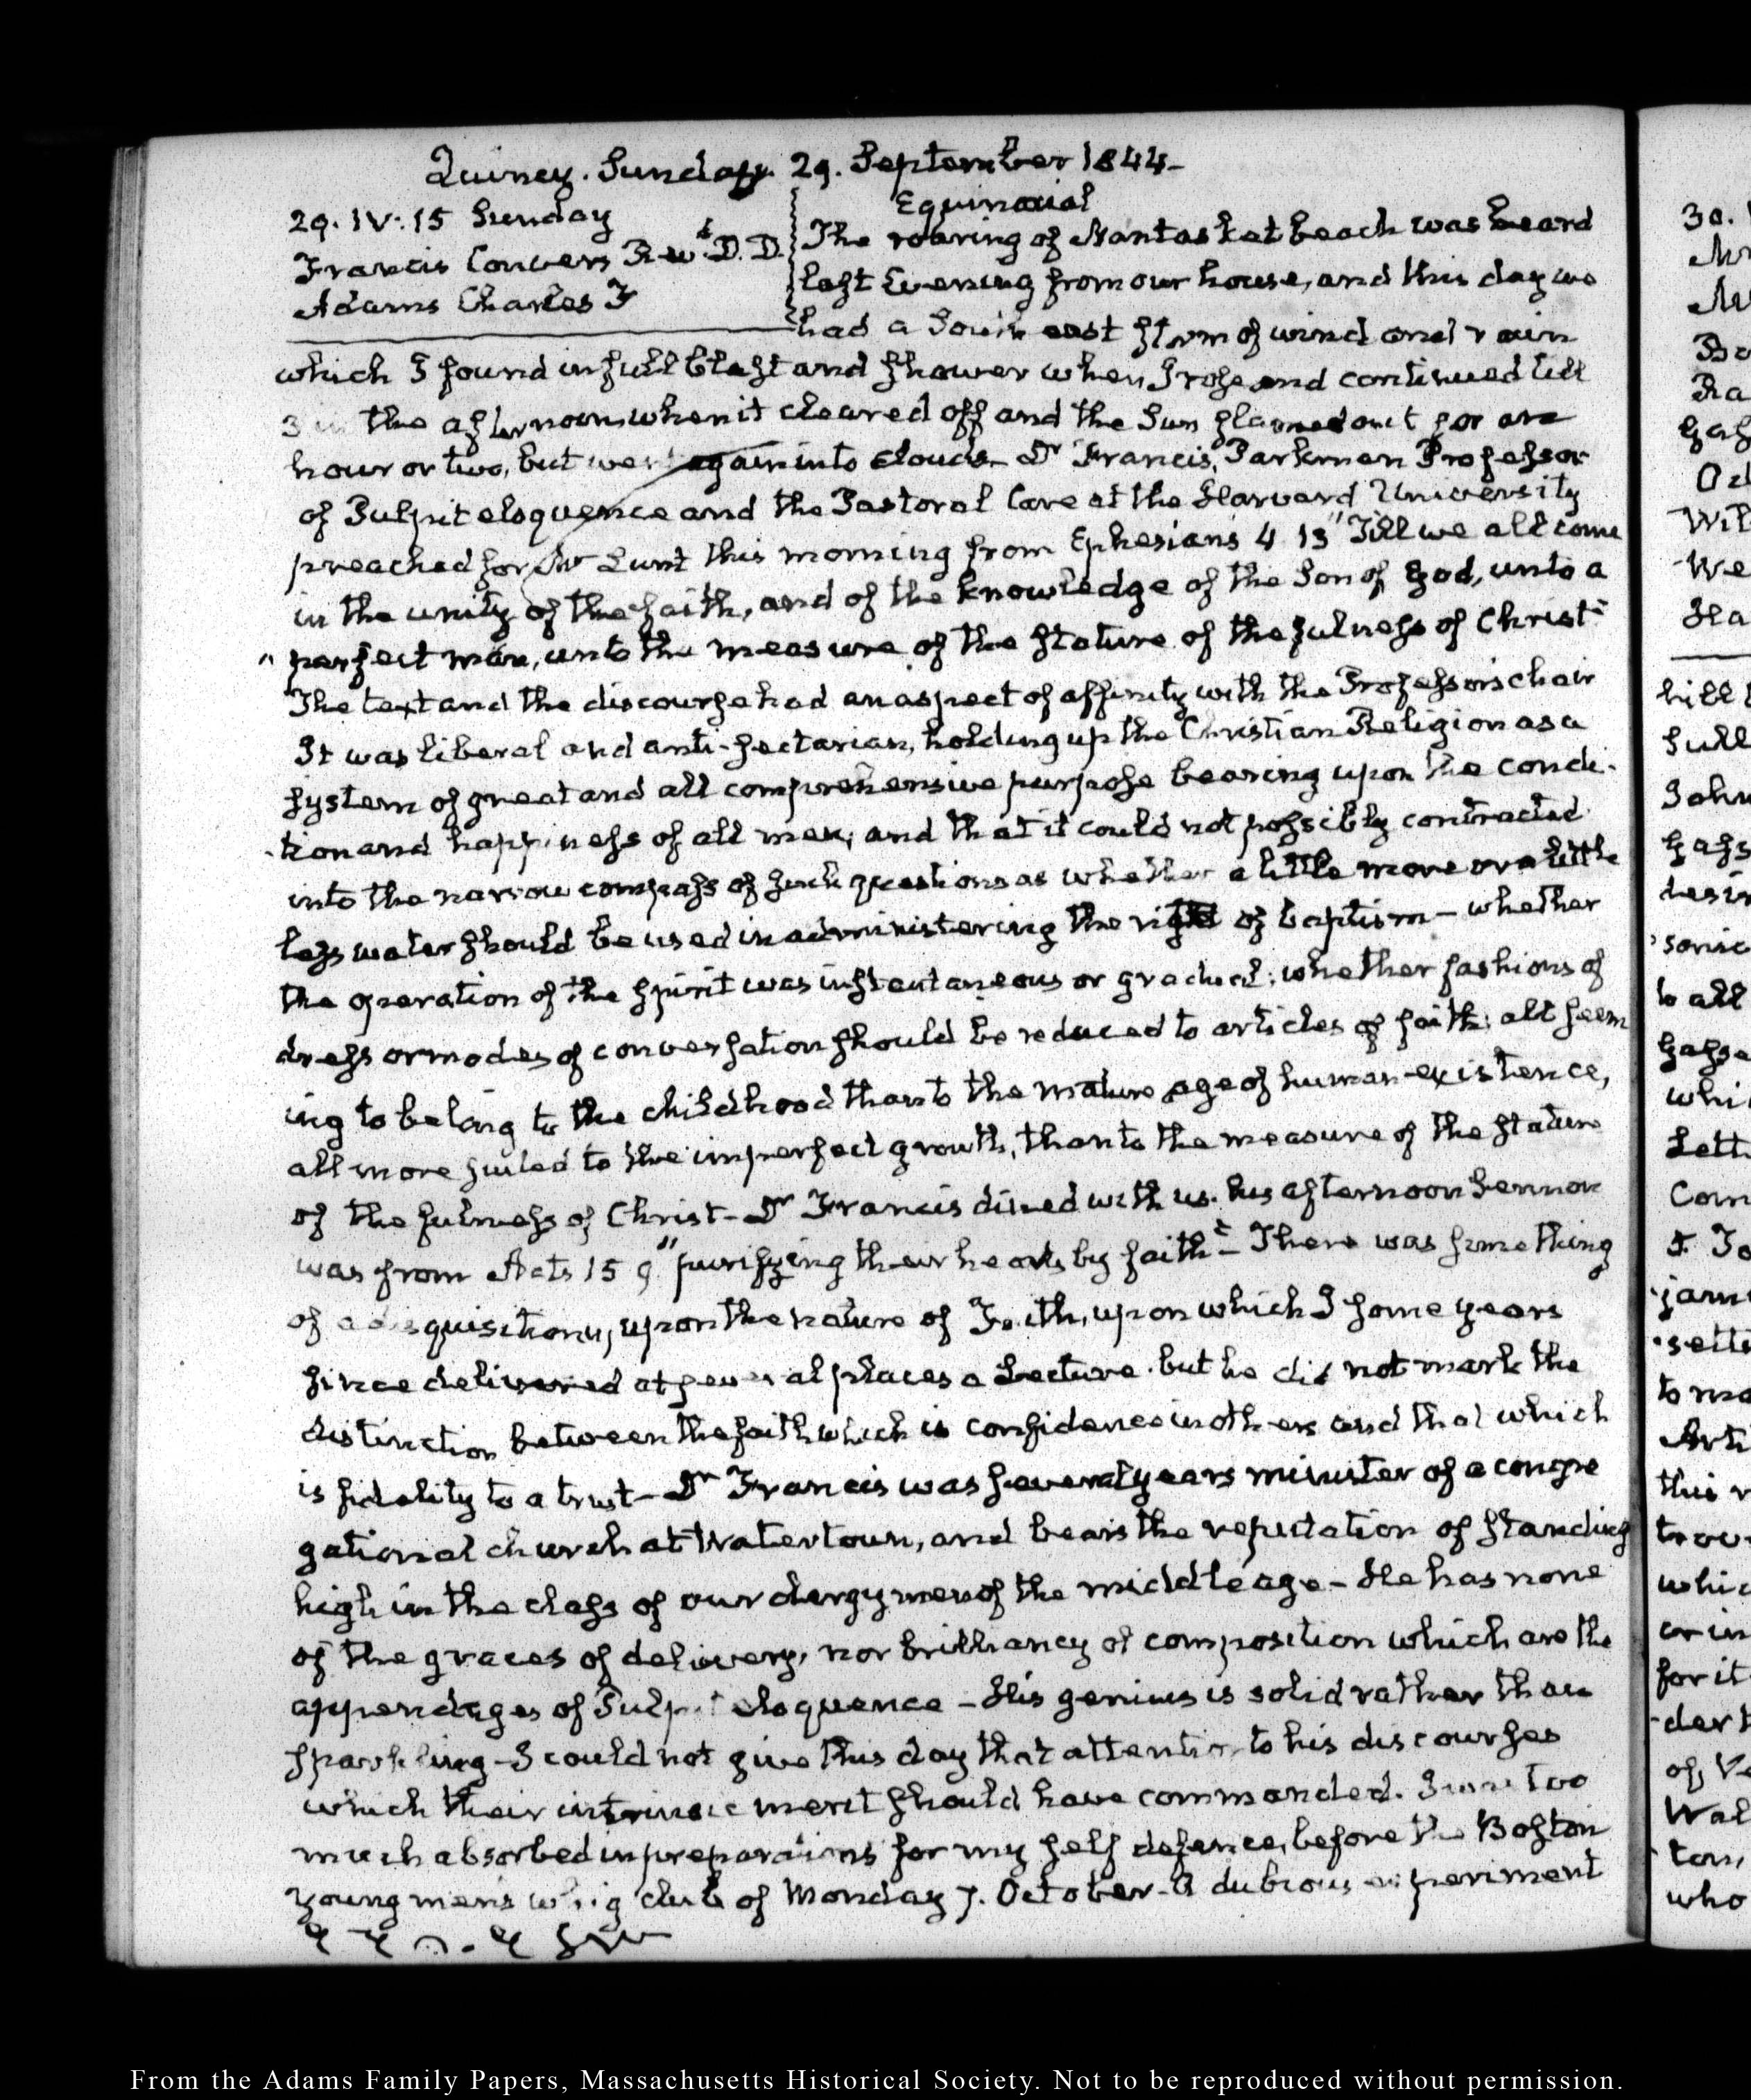 Quincy. Sunday 29. September 1844-
Equinoxial
29. IV: 15 Sunday
Francis Convers Revd. D.D.
Adams Charles F
The roaring of Nantasket beach was heard
last Evening from our house, and this day we
had a South east storm of wind and rain
which I found in full blast and shower when I rose and continued till
3 in the afternoon when it cleared off and the Sun flamed out for an
hour or two, but went again into clouds- Dr Francis, Parkman Professor
of Pulpit eloquence and the Pastoral Care at the Harvard University
preached for Mr Lunt this morning from Ephesians 4 13 "Till we all come
in the unity of the faith, and of the knowledge of the Son of God, unto a
" perfect man, unto the measure of the stature of the fulness of Christ"
The text and the discourse had an aspect of affinity with the Professor's chair
It was liberal and anti-sectarian, holding up the Christian Religion as a
system of great and all comprehensive purpose bearing upon the condi-
-tion and happiness of all men; and that it could not possibly contracted
into the narrow compass of such questions as whether a little more or a little
less water should be used in administering the right of baptism - whether
the operation of the spirit was instantaneous or gradual; whether fashions of
dress or modes of conversation should be reduced to articles of faith; all seem
ing to belong to the childhood than to the mature age of human existence,
all more suited to the imperfect growth, than to the measure of the stature
of the fulness of Christ- Dr Francis dined with us. his afternoon Sermon
was from Acts 15 9 "purifying their hearts by faith"- There was something
of a disquisition, upon the nature of Faith, upon which I some years
since delivered at several places a Lecture. but he did not mark the
distinction between the faith which is confidence in others and that which
is fidelity to a trust- Dr Francis was several years minister of a congre
gational church at Watertown, and bears the reputation of standing
high in the class of our clergymen of the middle age - He has none
of the graces of delivery, nor brilliancy of composition which are the
appendages of Pulpit eloquence - His genius is solid rather than
sparkling - I could not give this day that attention to his discourses
which their intrinsic merit should have commanded. I was too
much absorbed in preparations for my self defence, before the Boston
young men's whig club of Monday 7. October - A dubious experiment
30.
From the Adams Family Papers, Massachusetts Historical Society. Not to be reproduced without permission.